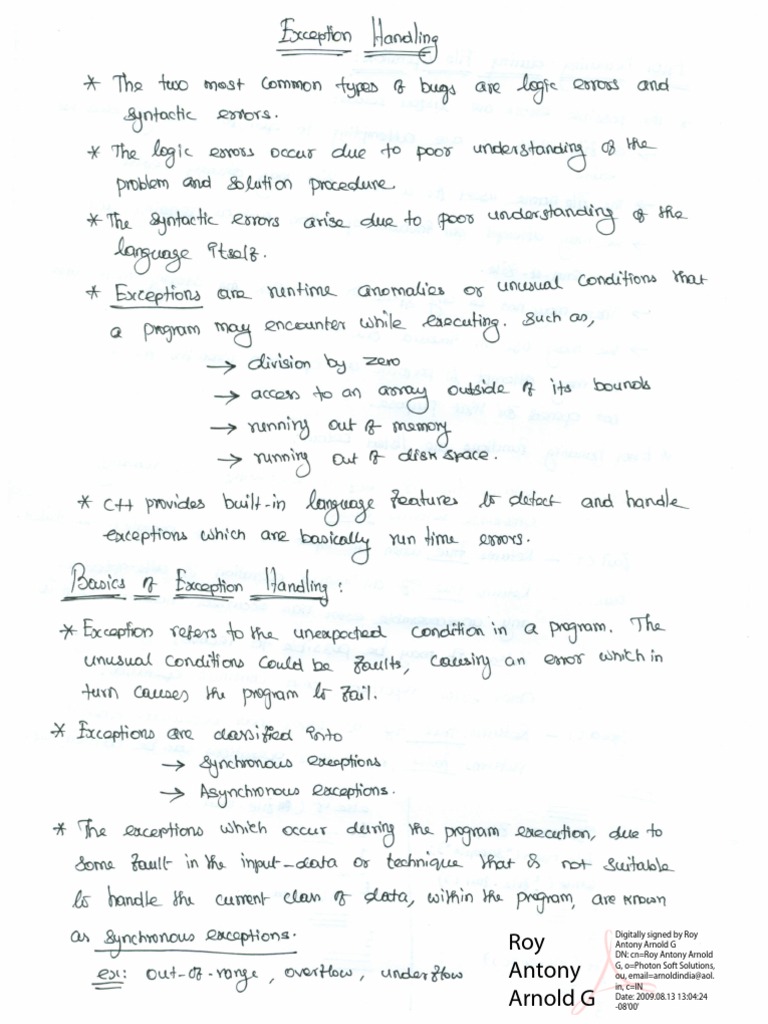 Exception Handling
* The two most common types of bugs are logic errors and
syntactic errors.
* The logic errors occur due to poor understanding of the
problem and solution procedure.
* The syntactic errors arise due to poor understanding of the
language itself.
* Exceptions are runtime anomalies or unusual conditions that
a program may encounter while executing. Such as,
→ division by zero
→ access to an array outside of its bounds
→ running out of memory
→ running out of disk space.
* C++ provides built-in language features to detect and handle
exceptions which are basically run time errors.
Basics of Exception Handling :
* Exception refers to the unexpected condition in a program. The
unusual conditions could be faults, causing an error which in
turn causes the program to fail.
* Exceptions are classified into
→ Synchronous exceptions
→ Asynchronous exceptions.
* The exceptions which occur during the program execution, due to
some fault in the input-data or technique that is not suitable
to handle the current class of data, within the program, are known
as synchronous exceptions.
ex: out-of-range, overflow, underflow
Roy
Antony
Arnold G
Digitally signed by Roy
Antony Arnold G
DN: cn=Roy Antony Arnold
G, o=Photon Soft Solutions,
ou, email=arnoldindia@aol.
in, c=IN
Date: 2009.08.13 13:04:24
-08'00'